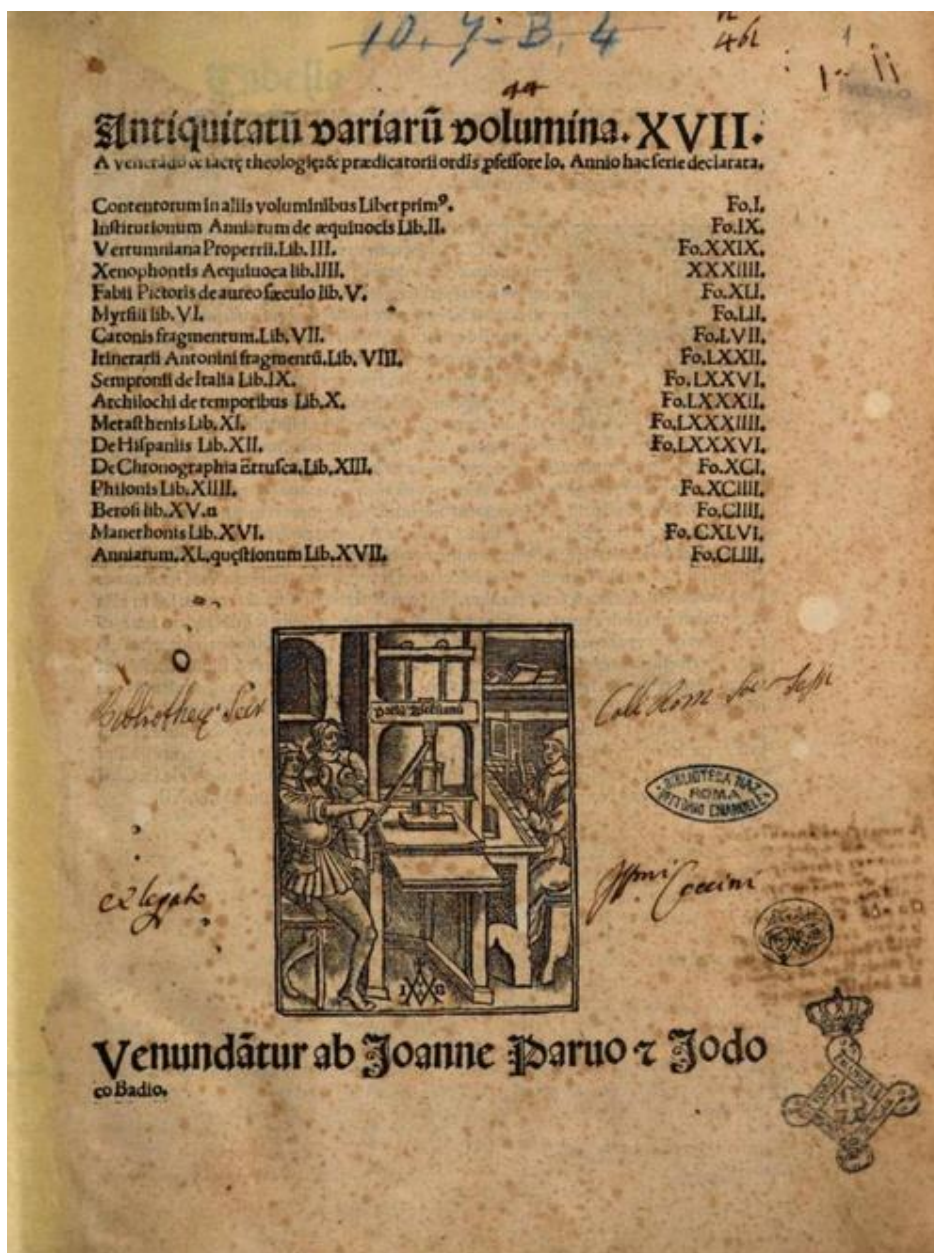 10. 7. B. 4
Antiquitatū variarū volumina. XVII.
A venerādo & sacrę theologię: & prædicatorii ordīs ꝓfessore Io. Annio hac serie declarata.
Contentorum in aliis voluminibus Liber primꝰ. Fo. I.
Institutionum Anniarum de æquiuocis Lib. II. Fo. IX.
Vertumniana Propertii. Lib. III. Fo. XXIX.
Xenophontis Aequiuoca lib. IIII. XXXIIII.
Fabii Pictoris de aureo sæculo lib. V. Fo. XLI.
Myrsili lib. VI. Fo. LII.
Catonis fragmentum. Lib. VII. Fo. LVII.
Itinerarii Antonini fragmentū. Lib. VIII. Fo. LXXII.
Sempronii de Italia Lib. IX. Fo. LXXVI.
Archilochi de temporibus Lib. X. Fo. LXXXII.
Metasthenis Lib. XI. Fo. LXXXIIII.
De Hispaniis Lib. XII. Fo. LXXXVI.
De Chronographia Etrusca. Lib. XIII. Fo. XCI.
Philonis Lib. XIIII. Fo. XCIIII.
Berosi lib. XV. Fo. CIIII.
Manethonis Lib. XVI. Fo. CXLVI.
Anniarum. XL. quęstionum Lib. XVII. Fo. CLIII.
BIBLIOTECA NAZ.
ROMA
VITTORIO EMANUELE
ex legato
Venundātur ab Joanne Paruo ⁊ Jodo
co Badio.